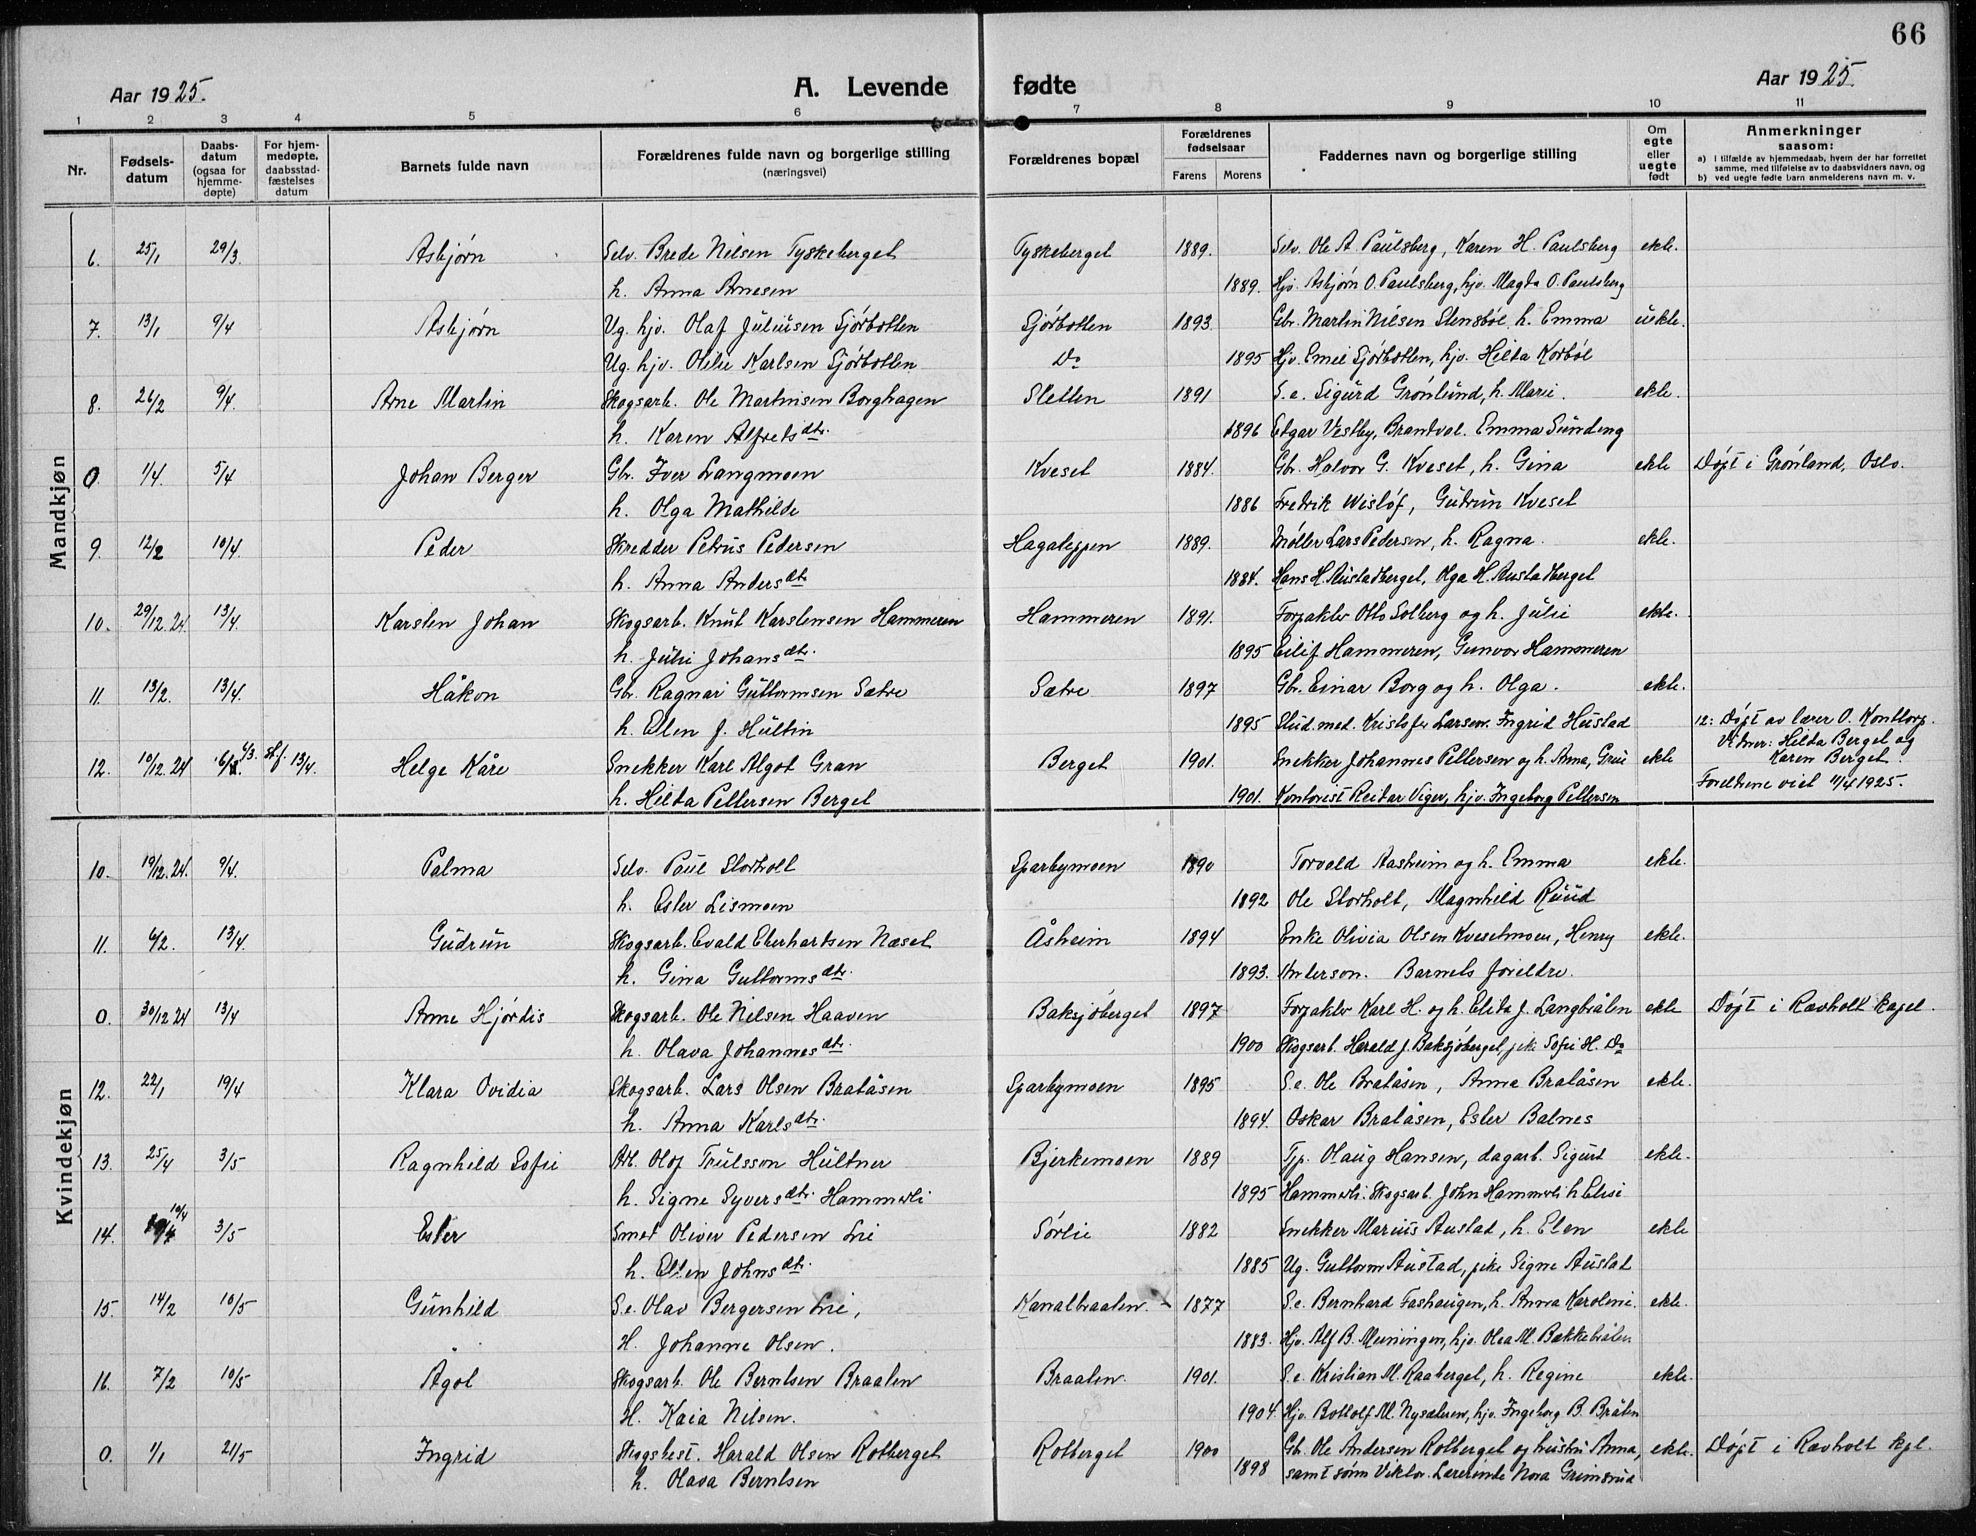 66
Aar 1925.
A. Levende fødte
Aar 1925.
1 2 3 4 5 6 7 8 9 10 11
Nr.
Fødsels-
datum
Daabs-
datum
(ogsaa for
hjemme-
døpte)
For hjem-
medøpte,
daabsstad-
fæstelses
datum
Barnets fulde navn
Forældrenes fulde navn og borgerlige stilling
(næringsvei)
Forældrenes bopæl
Forældrenes
fødselsaar
Farens Morens
Faddernes navn og borgerlige stilling
Om
egte
eller
uegte
født
Anmerkninger
saasom:
a) i tilfælde av hjemmedaab, hvem der har forrettet
samme, med tilføielse av to daabsvidners navn, og
b) ved uegte fødte barn anmelderens navn m. v.
Mandkjøn
6. 25/1 29/3. Asbjørn Selv. Brede Nilsen Tyskeberget Tyskeberget 1889. Selv. Ole A. Paulsberg, Karen H. Paulsberg ekte.
h. Anna Arnesen 1889. Hjv. Asbjørn O. Paulsberg, hjv. Magda O. Paulsberg
7. 13/1 9/4 Asbjørn Ug. hjv. Olaf Juliusen Sjørbotten Sjørbotten 1893 Gbr. Martin Nilsen Stensbøl h. Emma uekte.
Ug. hjv. Otilie Karlsen Sjørbotten Do 1895 Hjv. Emil Sjørbotten, hjv. Hilda Korbøl
8. 26/2 9/4. Arne Martin Skogsarb. Ole Martinsen Borghagen Sletten 1891 S.e. Sigurd Grønlund, h. Marie. ekte.
h. Karen Alfretsdtr. 1896 Edgar Vestby, Brandval. Emma Sunding
0 1/4. 5/4 Johan Berger Gbr. Iver Langmoen Kveset 1884. Gbr. Halvor G. Kveset, h. Gina ekte Døpt i Grønland, Oslo.
h. Olga Mathilde 1886 Fredrik Wisløf, Gudrun Kveset
9. 12/2 10/4. Peder Skredder Petrus Pedersen Hagaleggen 1889. Møller Lars Pedersen, h. Ragna. ekte.
h. Anna Andersdtr 1884. Hans H. Austadberget, Olga H. Austadberget
10. 29/12.24 13/4. Karsten Johan Skogsarb. Knut Karstensen Hammeren Hammeren 1891. Forpakter Otto Solberg og h. Julie ekte.
h. Julie Johansdtr. 1895 Eilif Hammeren, Gunvor Hammeren
11. 13/2. 13/4. Håkon Gbr. Ragnar Guttormsen Sætre Sætre 1897 Gbr. Einar Borg og h. Olga. ekte.
h. Elen J. Hultin 1895 Stud.med. Kristofer Larsen. Ingrid Hustad
12. 10/12.24 6/3. stf. 13/4. Helge Kåre Snekker Karl Algot Gran Berget 1901. Snekker Johannes Pettersen og h. Anna, Grue ekte
h. Hilda Pettersen Berget 1901. Kontorist Reidar Viger, hjv. Ingeborg Pettersen
12: Døpt av lærer O. Konttorp.
Vidner: Hilda Berget og
Karen Berget.
Foreldrene viet 11/4 1925.
Kvindekjøn
10. 19/12.24. 9/4. Palma Selv. Paul Storholt Sparbymoen 1890 Torvald Aasheim og h. Emma ekte.
h. Ester Lismoen 1892 Ole Storholt, Magnhild Ruud
11. 6/2. 13/4. Gudrun Skogsarb. Evald Eberhartsen Næset Åsheim 1894 Enke Olivia Olsen Kvesetmoen, Henry ekte.
h. Gina Guttormsdtr. 1893. Anderson. Barnets foreldre.
0. 30/12 24 13/4 Anne Hjørdis Skogsarb. Ole Nilsen Haaven Baksjøberget 1897 Forpakter Karl H. og h. Elida J. Langbråten ekte Døpt i Ravholt kapel.
h. Olava Johannesdtr. 1900 Skogsarb. Harald J. Baksjøberget, pike Sofie H. Do
12. 22/1 19/4 Klara Ovidia Skogsarb. Lars Olsen Bratåsen Sparbymoen 1895 S.e. Ole Bratåsen, Anna Bratåsen ekte.
h. Anna Karlsdtr. 1894. Oskar Bratåsen, Ester Balnes
13. 25/4 3/5 Ragnhild Sofie Arb. Olof Trulsson Hultner Bjerkemoen 1889 Tjp. Olaug Hansen, dagarb. Sigurd ekte.
h. Signe Syversdtr. Hammerli 1895 Hammerli. Skogsarb. John Hammerli h Elise
14. 10/4 3/5 Ester Smed Oliver Pedersen Lie Sørlie 1882 Snekker Marius Austad, h. Elen ekte
h. Ellen Johnsdtr. 1885 Ug. Guttorm Austad, pike Signe Austad
15. 14/2 10/5 Gunhild S.e. Olav Bergersen Lie, Kanalbraaten 1877 S.e. Bernhard Fashaugen, h. Anna Karoline. ekte.
H. Johanne Olsen. 1883. Hjv. Alf B. Meiningen, hjv. Olea M. Bakkebråten
16. 7/2 10/5 Ågot Skogsarb. Ole Berntsen Braaten Braaten. 1901. S.e. Kristian M. Raaberget, h. Regine ekte.
H. Kaia Nilsen. 1904. Hjv. Bottolf M. Nysæteren, hjv. Ingeborg B. Bråten
0. 1/1 21/5 Ingrid Skogsbest. Harald Olsen Rotberget Rotberget 1900 Gb. Ole Andersen Rotberget og hustru Anna, ekte. Døpt i Ravholt kpl.
h. Olava Berntsen 1898 samt sønn Viktor. Lærerinde Nora Grimsrud